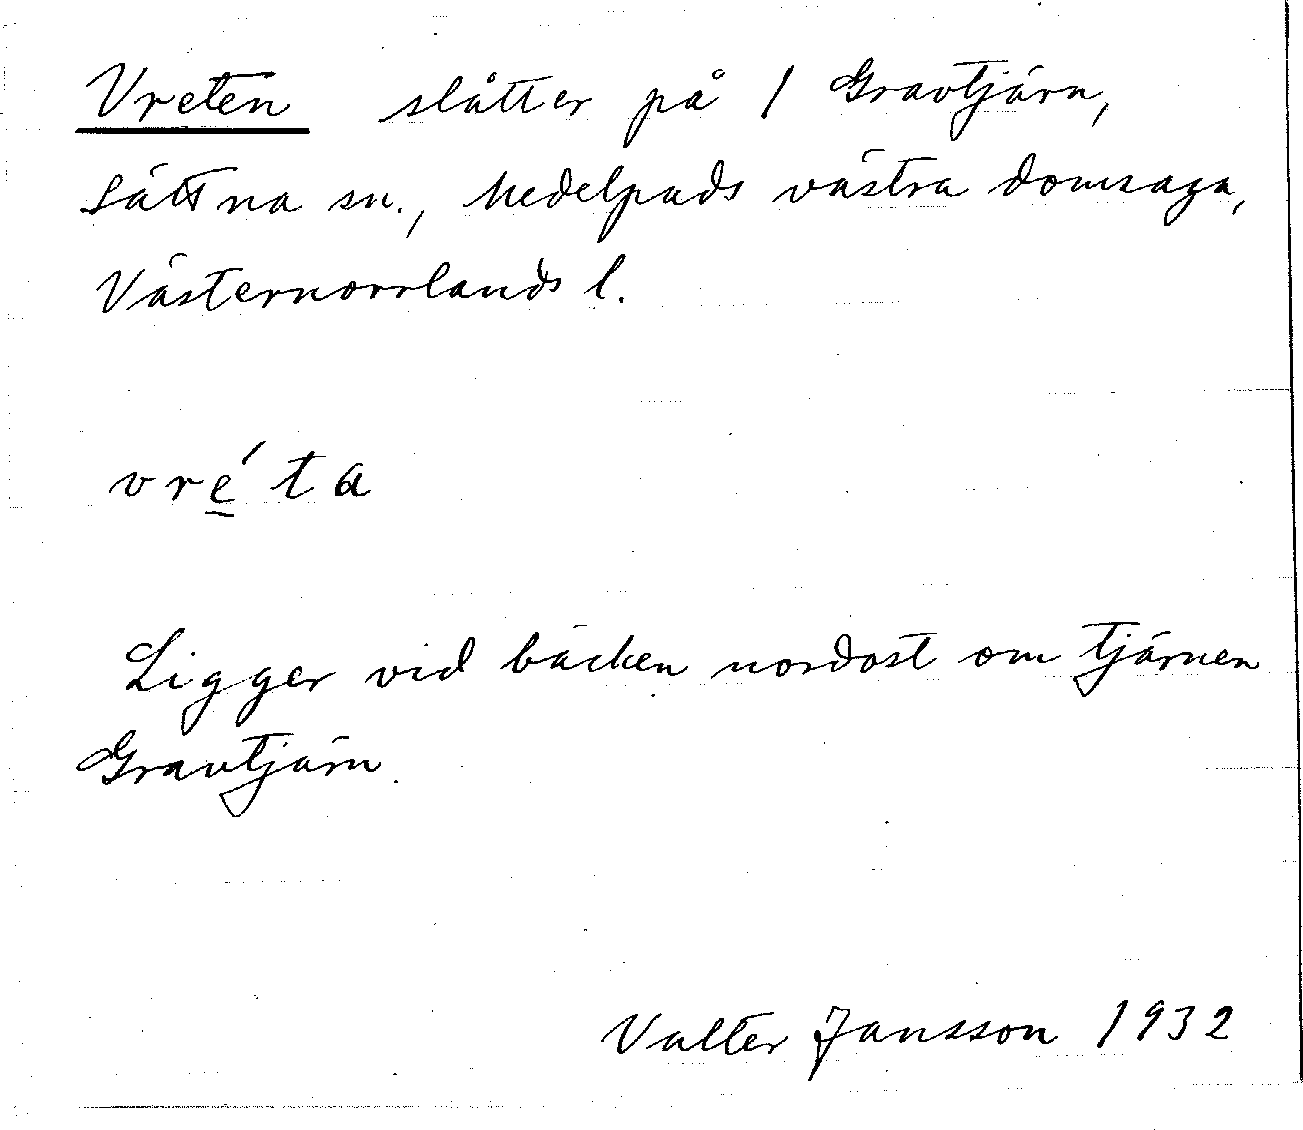 Vreten slåtter på 1 Gravtjärn,
Sättna sn., Medelpads västra domsaga,
Västernorrlands l.
vre̲´ta
Ligger vid bäcken nordost om tjärnen
Gravtjärn.
Valter Jansson 1932